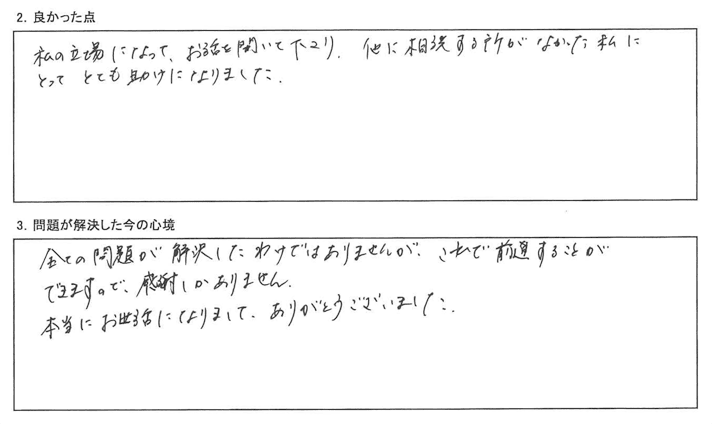 2. 良かった点
私の立場になって、お話を聞いて下さり、他に相談する所がなかった私に
とって とても助けになりました。
3. 問題が解決した今の心境
全ての問題が解決したわけではありませんが、これで前進することが
できますので、感謝しかありません。
本当にお世話になりまして、ありがとうございました。